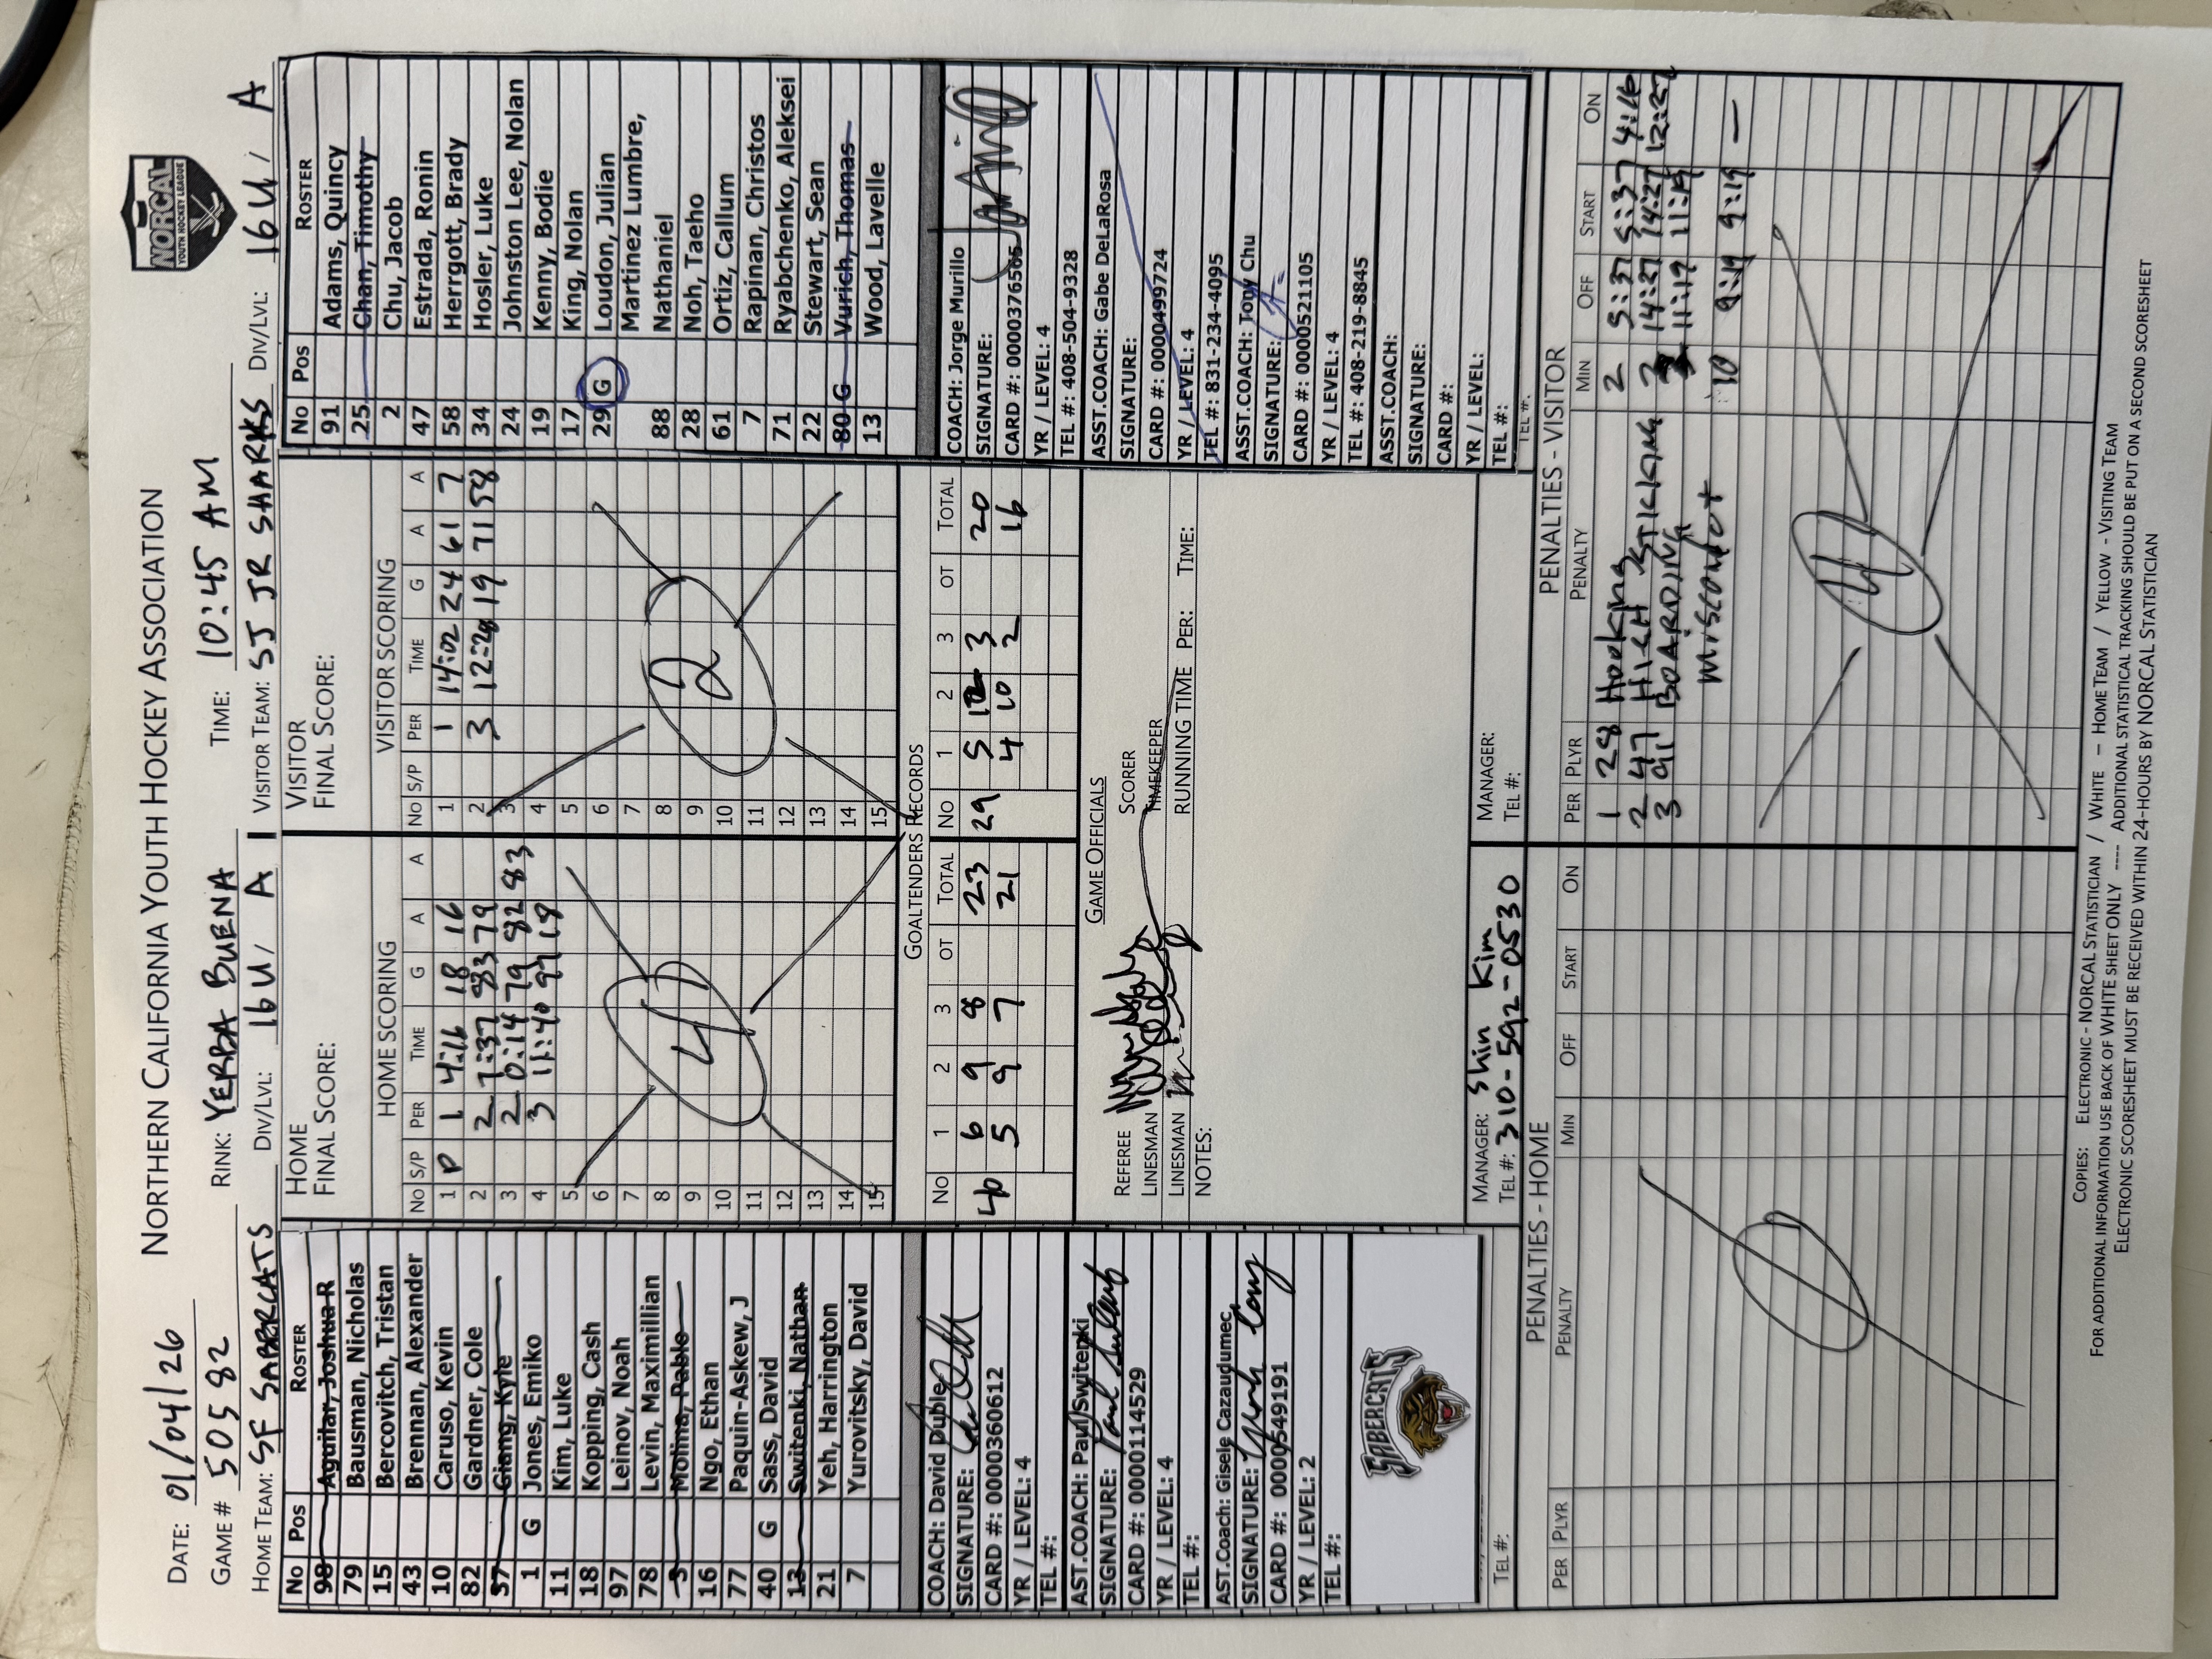 NORTHERN CALIFORNIA YOUTH HOCKEY ASSOCIATION
NORCAL
YOUTH HOCKEY LEAGUE
DATE: 01/04/26
GAME # 50582 RINK: YERBA BUENA TIME: 10:45 AM
HOME TEAM: SF SABERCATS DIV/LVL: 16U / A VISITOR TEAM: SJ JR SHARKS DIV/LVL: 16U / A
No Pos ROSTER
98 Aguilar, Joshua R
79 Bausman, Nicholas
15 Bercovitch, Tristan
43 Brennan, Alexander
10 Caruso, Kevin
82 Gardner, Cole
37 Giang, Kyle
1 G Jones, Emiko
11 Kim, Luke
18 Kopping, Cash
97 Leinov, Noah
78 Levin, Maximillian
3 Molina, Pablo
16 Ngo, Ethan
77 Paquin-Askew, J
40 G Sass, David
13 Switenki, Nathan
21 Yeh, Harrington
7 Yurovitsky, David
HOME
FINAL SCORE:
HOME SCORING
No S/P PER TIME G A A
1 P 1 4:16 18 16
2 2 7:37 83 79
3 2 0:14 79 82 83
4 3 11:40 97 18
5
6
7
8
9
10
11
12
13
14
15
4
VISITOR
FINAL SCORE:
VISITOR SCORING
No S/P PER TIME G A A
1 1 14:02 24 61 7
2 3 12:28 19 71 58
3
4
5
6
7
8
9
10
11
12
13
14
15
2
No Pos ROSTER
91 Adams, Quincy
25 Chan, Timothy
2 Chu, Jacob
47 Estrada, Ronin
58 Herrgott, Brady
34 Hosler, Luke
24 Johnston Lee, Nolan
19 Kenny, Bodie
17 King, Nolan
29 G Loudon, Julian
Martinez Lumbre,
88 Nathaniel
28 Noh, Taeho
61 Ortiz, Callum
7 Rapinan, Christos
71 Ryabchenko, Aleksei
22 Stewart, Sean
80 G Vurich, Thomas
13 Wood, Lavelle
GOALTENDERS RECORDS
No 1 2 3 OT TOTAL No 1 2 3 OT TOTAL
40 6 9 8 23 29 5 12 3 20
5 9 7 21 4 10 2 16
COACH: David Dubley
SIGNATURE:
CARD #: 0000360612
YR / LEVEL: 4
TEL #:
AST.COACH: Paul Switenki
SIGNATURE:
CARD #: 0000114529
YR / LEVEL: 4
TEL #:
AST.Coach: Gisele Cazaudumec
SIGNATURE:
CARD #: 0000549191
YR / LEVEL: 2
TEL #:
SABERCATS
TEL #:
GAME OFFICIALS
REFEREE SCORER
LINESMAN TIMEKEEPER
LINESMAN RUNNING TIME PER: TIME:
NOTES:
MANAGER: Shin Kim
TEL #: 310-592-0530
MANAGER:
TEL #:
COACH: Jorge Murillo
SIGNATURE:
CARD #: 0000376565
YR / LEVEL: 4
TEL #: 408-504-9328
ASST.COACH: Gabe DeLaRosa
SIGNATURE:
CARD #: 0000499724
YR / LEVEL: 4
TEL #: 831-234-4095
ASST.COACH: Tony Chu
SIGNATURE:
CARD #: 0000521105
YR / LEVEL: 4
TEL #: 408-219-8845
ASST.COACH:
SIGNATURE:
CARD #:
YR / LEVEL:
TEL #:
TEL #:
PENALTIES - HOME
PER PLYR PENALTY MIN OFF START ON
0
PENALTIES - VISITOR
PER PLYR PENALTY MIN OFF START ON
1 28 Hooking 2 5:37 5:37 4:16
2 47 HIGH STICKING 2 14:27 14:27 12:27
3 91 BOARDING 11:19 11:19
Misconduct 10 9:19 9:19 —
COPIES: ELECTRONIC - NORCAL STATISTICIAN / WHITE – HOME TEAM / YELLOW - VISITING TEAM
FOR ADDITIONAL INFORMATION USE BACK OF WHITE SHEET ONLY ---- ADDITIONAL STATISTICAL TRACKING SHOULD BE PUT ON A SECOND SCORESHEET
ELECTRONIC SCORESHEET MUST BE RECEIVED WITHIN 24-HOURS BY NORCAL STATISTICIAN